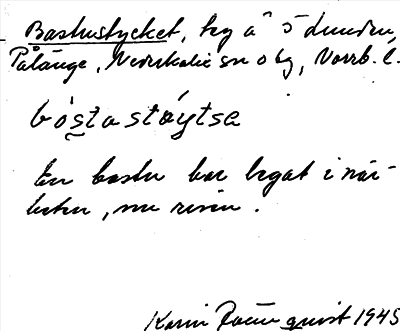 Bastustycket, hg å Ö Lunden,
Pålänge, Nederkalix sn o bg, Norrb. l.
bòstastóytsə
En bastu har legat i när-
heten, nu riven.
Karin Rönnquist 1945